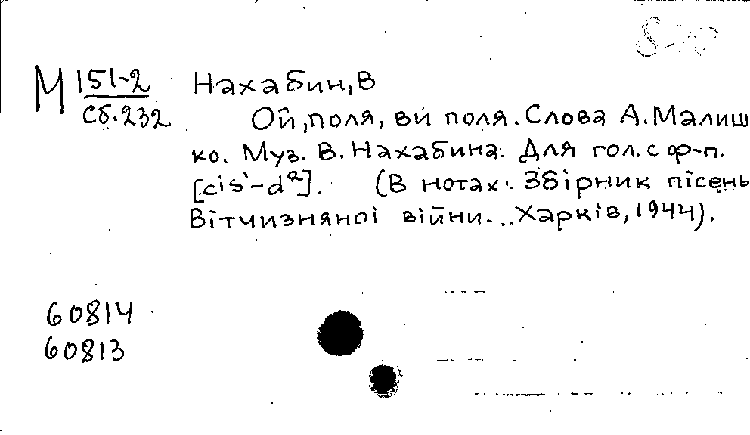 М 151-2
Сб.232
Нахабин, В
Ой, поля, ви поля. Слова А. Малиш
ко. Муз. В. Нахабина. Для гол. с ф-п.
[cis¹-d²]. (В нотах: Збірник пісень
Вітчизняної війни... Харків, 1944).
60814
60813